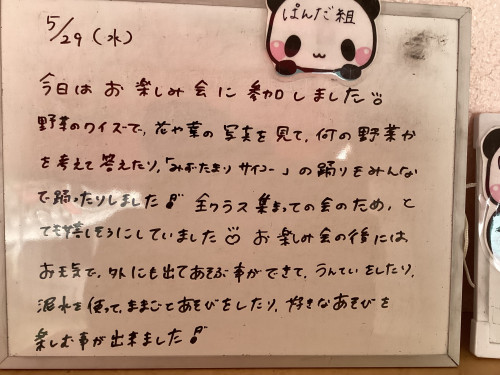 ぱんだ組
5/29(水)
今日はお楽しみ会に参加しました
野菜のクイズで、花や葉の写真を見て、何の野菜か
を考えて答えたり、「みずたまりサイコー」の踊りをみんな
で踊ったりしました♪ 全クラス集まっての会のため、と
ても嬉しそうにしていました お楽しみ会の後には
お天気で、外にも出てあそぶ事ができて、うんていをしたり、
泥水を使って、ままごとあそびをしたり、好きなあそびを
楽しむ事が出来ました♪